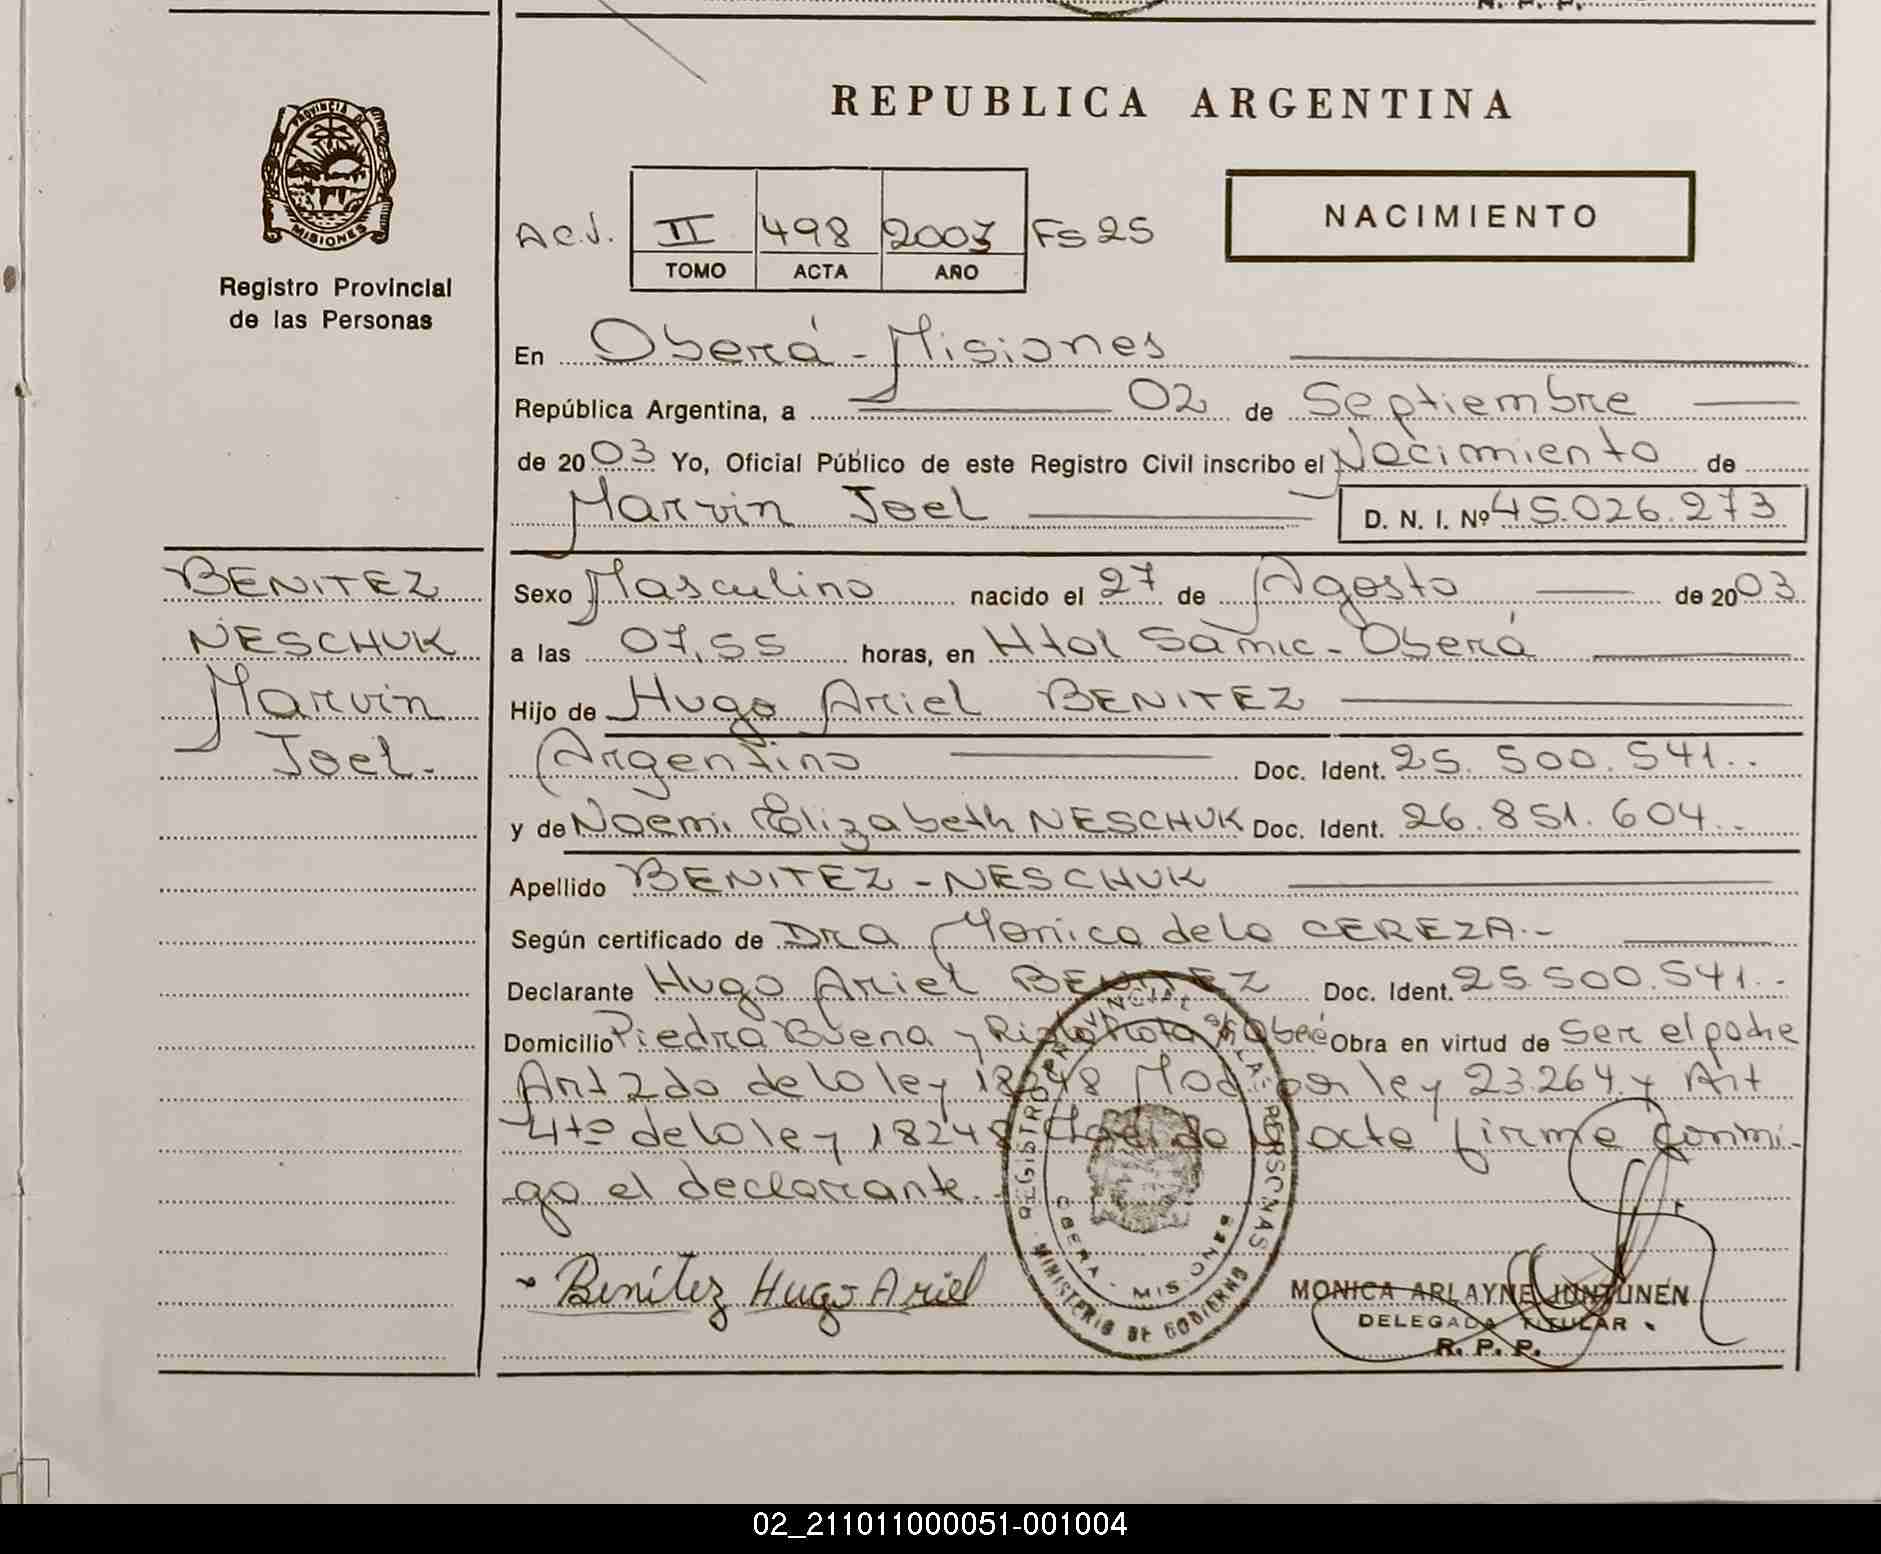 N. P. P.
REPUBLICA ARGENTINA
PROVINCIA DE
MISIONES
Registro Provincial
de las Personas
NACIMIENTO
A.C.J. II 498 2003 Fs 25
TOMO ACTA AÑO
En Oberá - Misiones
República Argentina, a 02 de Septiembre
de 2003 Yo, Oficial Público de este Registro Civil inscribo el Nacimiento de
Marvin Joel D. N. I. Nº 45.026.273
BENITEZ
NESCHUK
Marvin
Joel.
Sexo Masculino nacido el 27 de Agosto de 2003
a las 07,55 horas, en Htal Samic - Oberá
Hijo de Hugo Ariel BENITEZ
Argentino Doc. Ident. 25.500.541..
y de Noemi Elizabeth NESCHUK Doc. Ident. 26.851.604..
Apellido BENITEZ - NESCHUK
Según certificado de Dra Monica de la CEREZA.-
Declarante Hugo Ariel BENITEZ Doc. Ident. 25.500.541.-
Domicilio Piedra Buena y Obra en virtud de Ser el padre
Art 2do de la ley 18248 Mod por ley 23.264 y Art
4to de la ley 18248 acta firma conmi-
go el declarante.
Benítez Hugo Ariel
REGISTRO PROVINCIAL DE LAS PERSONAS
OBERA - MISIONES
MINISTERIO DE GOBIERNO
MONICA ARLAYNE JONTUNEN
DELEGADA TITULAR
R. P. P.
02_211011000051-001004